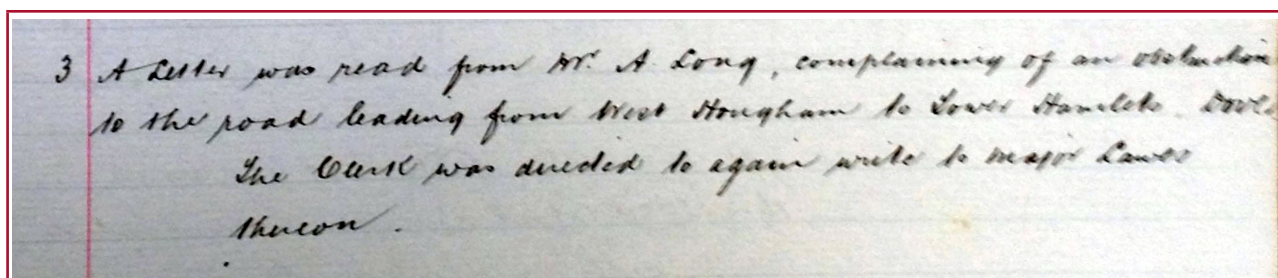 3 A Letter was read from Mr. A. Long, complaining of an obstruction
to the road leading from West Hougham to Lower Hamlets.
The Clerk was directed to again write to Major Lawes
thereon.